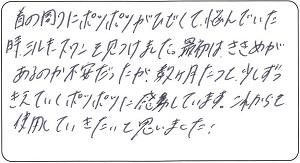 首の周りにポツポツがひどくて、悩んでいた
時、シルキースワンを見つけました。最初は、ききめが
あるのか不安だったが、数ヶ月たつと、少しずつ
きえていくポツポツに感動しています。これからも
使用していきたいと思いました!